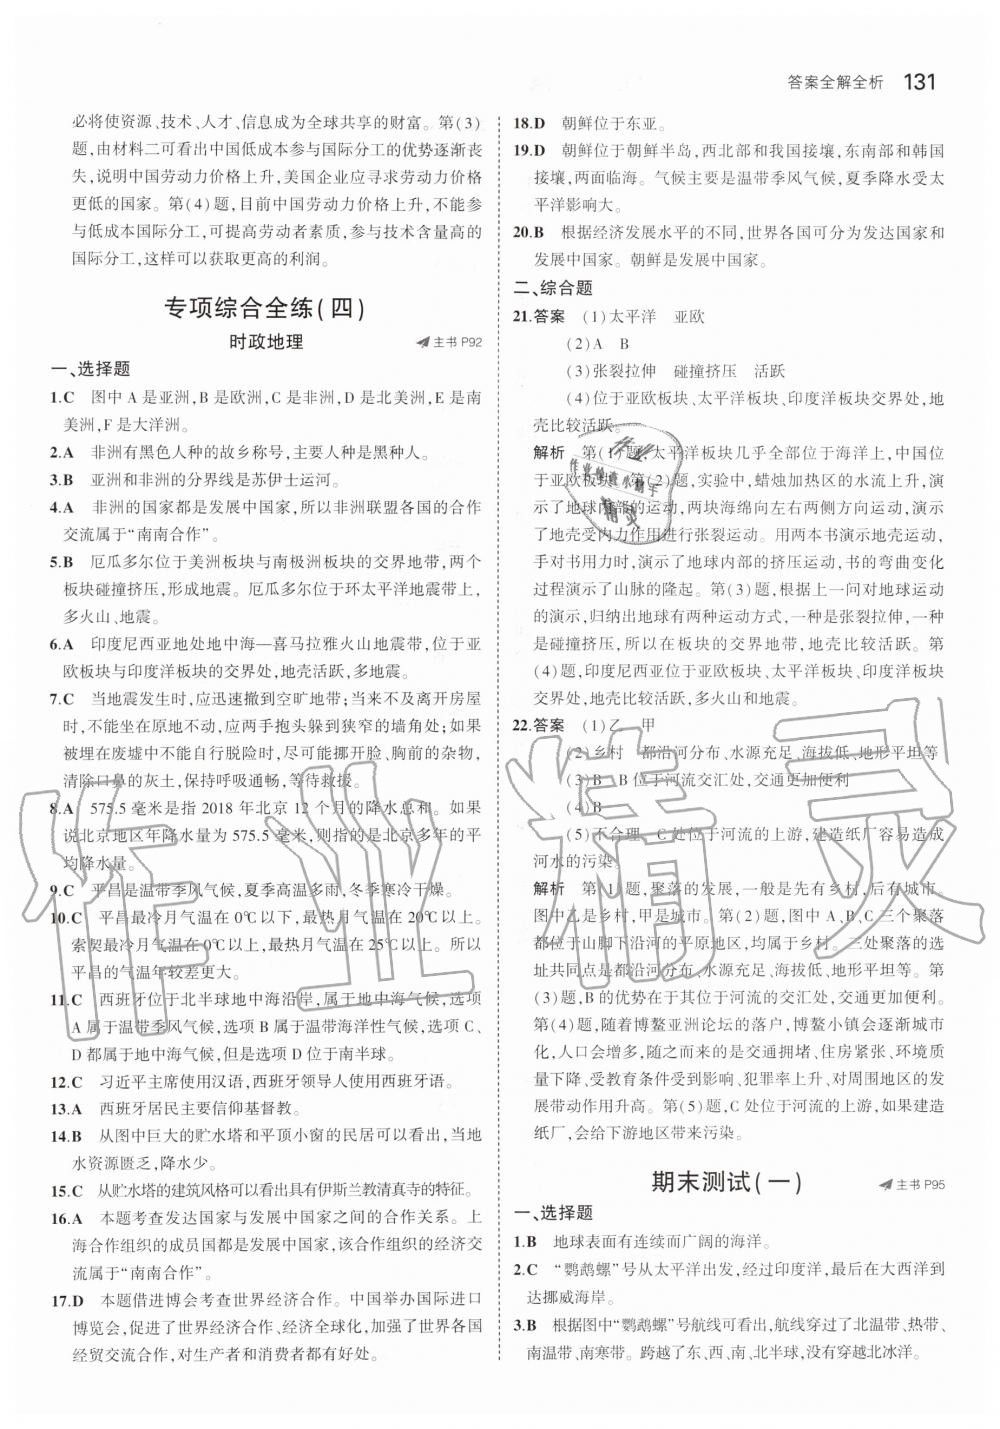 答案全解全析 131
必将使资源、技术、人才、信息成为全球共享的财富。第(3)
题,由材料二可看出中国低成本参与国际分工的优势逐渐丧
失,说明中国劳动力价格上升,美国企业应寻求劳动力价格
更低的国家。第(4)题,目前中国劳动力价格上升,不能参
与低成本国际分工,可提高劳动者素质,参与技术含量高的
国际分工,这样可以获取更高的利润。
专项综合全练(四)
时政地理 主书 P92
一、选择题
1.C 图中 A 是亚洲,B 是欧洲,C 是非洲,D 是北美洲,E 是南
美洲,F 是大洋洲。
2.A 非洲有黑色人种的故乡称号,主要是黑色人种。
3.B 亚洲和非洲的分界线是苏伊士运河。
4.A 非洲的国家都是发展中国家,所以非洲联盟各国的合作
交流属于“南南合作”。
5.B 厄瓜多尔位于美洲板块与南极洲板块的交界地带,两个
板块碰撞挤压,形成地震。厄瓜多尔位于环太平洋地震带上,
多火山、地震。
6.A 印度尼西亚地处地中海—喜马拉雅火山地震带,位于亚
欧板块与印度洋板块的交界处,地壳活跃,多地震。
7.C 当地震发生时,应迅速撤到空旷地带;当来不及离开房屋
时,不能坐在原地不动,应两手抱头躲到狭窄的墙角处;如果
被埋在废墟中不能进行自行脱险时,尽可能挪开脸、胸前的杂物,
清除口鼻的灰土,保持呼吸通畅,等待救援。
8.A 575.5 毫米是指 2018 年北京 12 个月的降水总和。如果
说北京地区年降水量为 575.5 毫米,则指的是北京多年的平
均降水量。
9.C 平昌是温带季风气候,夏季高温多雨,冬季寒冷干燥。
10.C 平昌最冷月气温在 0℃以下,最热月气温在20℃以上。
索契最冷月气温在 0℃以上,最热月气温在 25℃以上。所以
平昌的气温年较差更大。
11.C 西班牙位于北半球地中海沿岸,属于地中海气候,选项
A 属于温带季风气候,选项 B 属于温带海洋性气候,选项 C、
D 都属于地中海气候,但是选项 D 位于南半球。
12.C 习近平主席使用汉语,西班牙领导人使用西班牙语。
13.A 西班牙居民主要信仰基督教。
14.B 从图中巨大的贮水塔和平顶小窗的民居可以看出,当地
水资源匮乏,降水少。
15.C 从贮水塔的建筑风格可以看出具有伊斯兰教清真寺的特征。
16.A 本题考查发达国家与发展中国家之间的合作关系。上
海合作组织的成员国都是发展中国家,该合作组织的经济交
流属于“南南合作”。
17.D 本题借进博会考查世界经济合作。中国举办国际进口
博览会,促进了世界经济合作、经济全球化,加强了世界各国
经贸交流合作,对生产者和消费者都有好处。
18.D 朝鲜位于东亚。
19.D 朝鲜位于朝鲜半岛,西北部和我国接壤,东南部和韩国
接壤,两面临海。气候主要是温带季风气候,夏季降水受太
平洋影响大。
20.B 根据经济发展水平的不同,世界各国可分为发达国家和
发展中国家。朝鲜是发展中国家。
二、综合题
21.答案 (1)太平洋 亚欧
(2)A B
(3)张裂拉伸 碰撞挤压 活跃
(4)位于亚欧板块、太平洋板块、印度洋板块交界处,地
壳比较活跃。
解析 第(1)题,太平洋板块几乎全部位于海洋上,中国位
于亚欧板块。第(2)题,实验中,蜡烛加热区的水流上升,演
示了地球内部的运动,两块海绵向左右两侧方向运动,演示
了地壳受内力作用进行张裂运动。用两本书演示地壳运动,
手对书用力时,演示了地球内部的挤压运动,书的弯曲变化
过程演示了山脉的隆起。第(3)题,根据上一问对地球运动
的演示,归纳出地球有两种运动方式,一种是张裂拉伸,一种
是碰撞挤压,所以在板块的交界地带,地壳比较活跃。第
(4)题,印度尼西亚位于亚欧板块、太平洋板块、印度洋板块
交界处,地壳比较活跃,多火山和地震。
22.答案 (1)乙 甲
(2)乡村 都沿河分布、水源充足、海拔低、地形平坦等
(3)B B 位于河流交汇处,交通更加便利
(4)B
(5)不合理。C 处位于河流的上游,建造纸厂容易造成
河水的污染。
解析 第(1)题,聚落的发展,一般是先有乡村,后有城市。
图中乙是乡村,甲是城市。第(2)题,图中A、B、C 三个聚落
都位于山脚下沿河的平原地区,均属于乡村。三处聚落的选
址共同点是都沿河分布、水源充足、海拔低、地形平坦等。第
(3)题,B 的优势在于其位于河流的交汇处,交通更加便利。
第(4)题,随着博鳌亚洲论坛的落户,博鳌小镇会逐渐城市
化,人口会增多,随之而来的是交通拥堵、住房紧张、环境质
量下降、受教育条件受到影响、犯罪率上升、对周围地区的发
展带动作用升高。第(5)题,C 处位于河流的上游,如果建造
纸厂,会给下游地区带来污染。
期末测试(一) 主书 P95
一、选择题
1.B 地球表面有连续而广阔的海洋。
2.C “鹦鹉螺”号从太平洋出发,经过印度洋,最后在大西洋到
达挪威海岸。
3.B 根据图中“鹦鹉螺”号航线可看出,航线穿过了北温带、热带、
南温带、南寒带。跨越了东、西、南、北半球,没有穿越北冰洋。
作业精灵